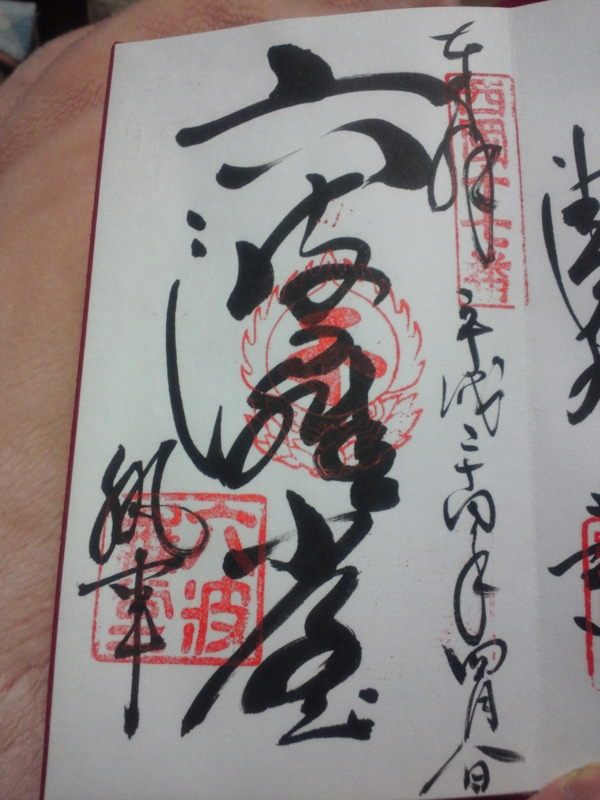 奉拝
西国十七番
平成二十四年四月八日
六波羅堂
執事
六波羅堂